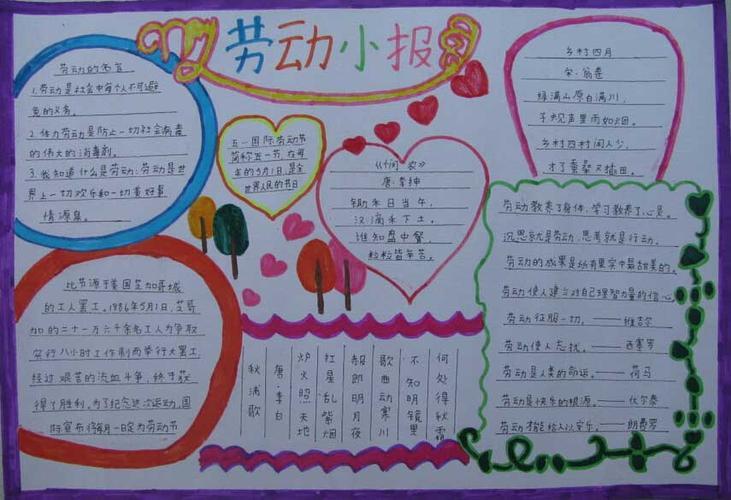 劳动小报
劳动的名言
1.劳动是社会中每个人不可避
免的义务。
2.体力劳动是防止一切社会病毒
的伟大的消毒剂。
3.我知道什么是劳动:劳动是世
界上一切欢乐和一切美好事
情源泉。
五一国际劳动节
简称五一节,在每
年的5月1日,是全
世界人民的节日
《悯农》
唐·李绅
锄禾日当午,
汗滴禾下土。
谁知盘中餐,
粒粒皆辛苦。
乡村四月
宋·翁卷
绿满山原白满川,
子规声里雨如烟。
乡村四月闲人少,
才了蚕桑又插田。
此节源于美国芝加哥城
的工人罢工。1986年5月1日,芝哥
加的二十一万六千余名工人为争取
实行八小时工作制而举行大罢工,
经过艰苦的流血斗争,终于获
得了胜利。为了纪念这次运动,国
际宣布将每月一日定为劳动节
秋浦歌
唐·李白
炉火照天地
红星乱紫烟
赧郎明月夜
歌曲动寒川
不知明镜里
何处得秋霜
劳动教养了身体,学习教养了心灵。
沉思就是劳动,思考就是行动。
劳动的成果是所有果实中最甜美的。
劳动使人建立对自己理智力量的信心
劳动征服一切。——维吉尔
劳动使人忘忧。——西塞罗
劳动是人类的命运。——荷马
劳动是快乐的根源。——伏尔泰
劳动才能给人以安乐。——朗费罗